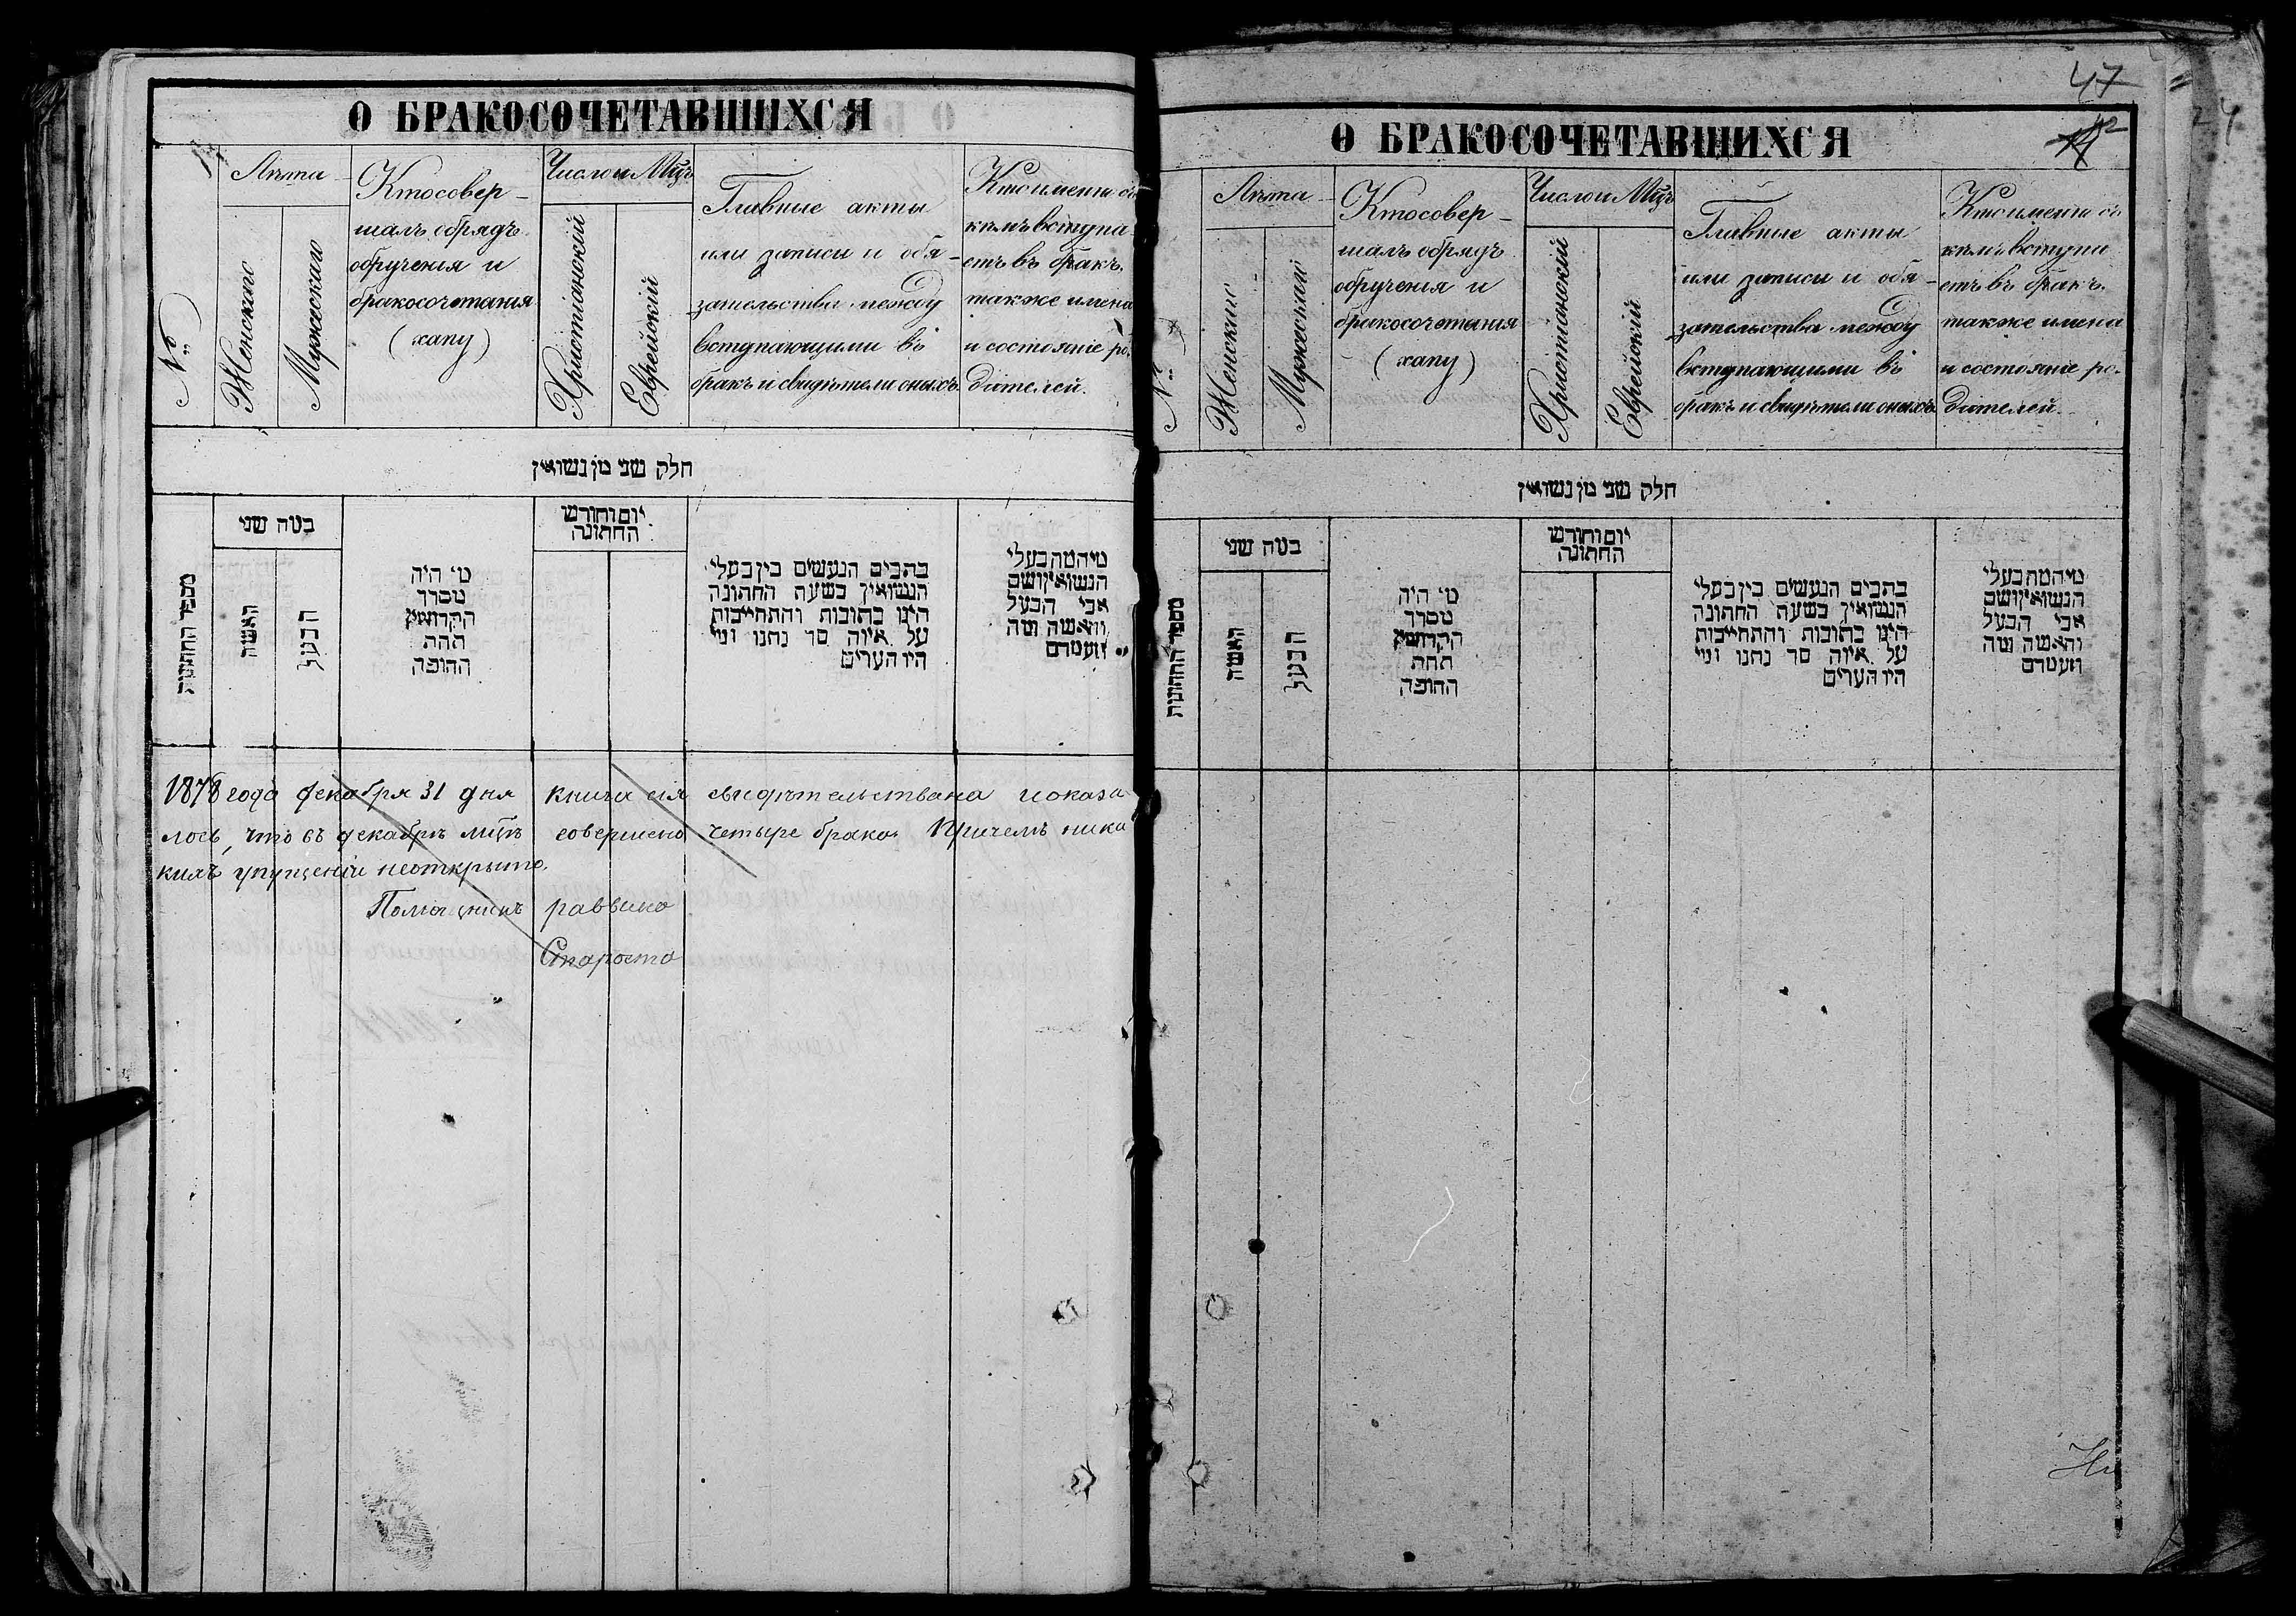 О БРАКОСОЧЕТАВШИХСЯ
№
Лѣта
Женскаго
Мужескаго
Кто совер-
шалъ обрядъ
обрученія и
бракосочетанія
(хапу)
Число и Мцъ
Христіанскій
Еврейскій
Главные акты
или записи и обя-
зательства между
вступающими въ
бракъ и свидѣтели оныхъ.
Кто именно съ
кѣмъ вступа
етъ въ бракъ.
также имена
и состояніе ро-
дителей.
חלק שני מן נשואין
מספר החתונות
במה שני
האשה
הבעל
מי היה
מסדר
הקדושין
תחת
החופה
יום וחודש
החתונה
כתבים הנעשים בין בעלי
הנשואין בשעת החתונה
היינו כתובות והתחייבות
על איזה סך נתנו ומי
היו העדים
מי המה בעלי
הנשואין ושם
אבי הבעל
והאשה ומה
מעמדם
1878 года декабря 31 дня книга сія свидѣтельствана и оказа
лось, что въ декабрѣ мцѣ совершено четыре брака. Причемъ ника
кихъ упущеніи неоткрыто.
Помощникъ раввина
Староста
47
О БРАКОСОЧЕТАВШИХСЯ
№
Лѣта
Женскаго
Мужескаго
Кто совер-
шалъ обрядъ
обрученія и
бракосочетанія
(хапу)
Число и Мцъ
Христіанскій
Еврейскій
Главные акты
или записи и обя-
зательства между
вступающими въ
бракъ и свидѣтели оныхъ.
Кто именно съ
кѣмъ вступа
етъ въ бракъ.
также имена
и состояніе ро-
дителей.
חלק שני מן נשואין
מספר החתונות
במה שני
האשה
הבעל
מי היה
מסדר
הקדושין
תחת
החופה
יום וחודש
החתונה
כתבים הנעשים בין בעלי
הנשואין בשעת החתונה
היינו כתובות והתחייבות
על איזה סך נתנו ומי
היו העדים
מי המה בעלי
הנשואין ושם
אבי הבעל
והאשה ומה
מעמדם